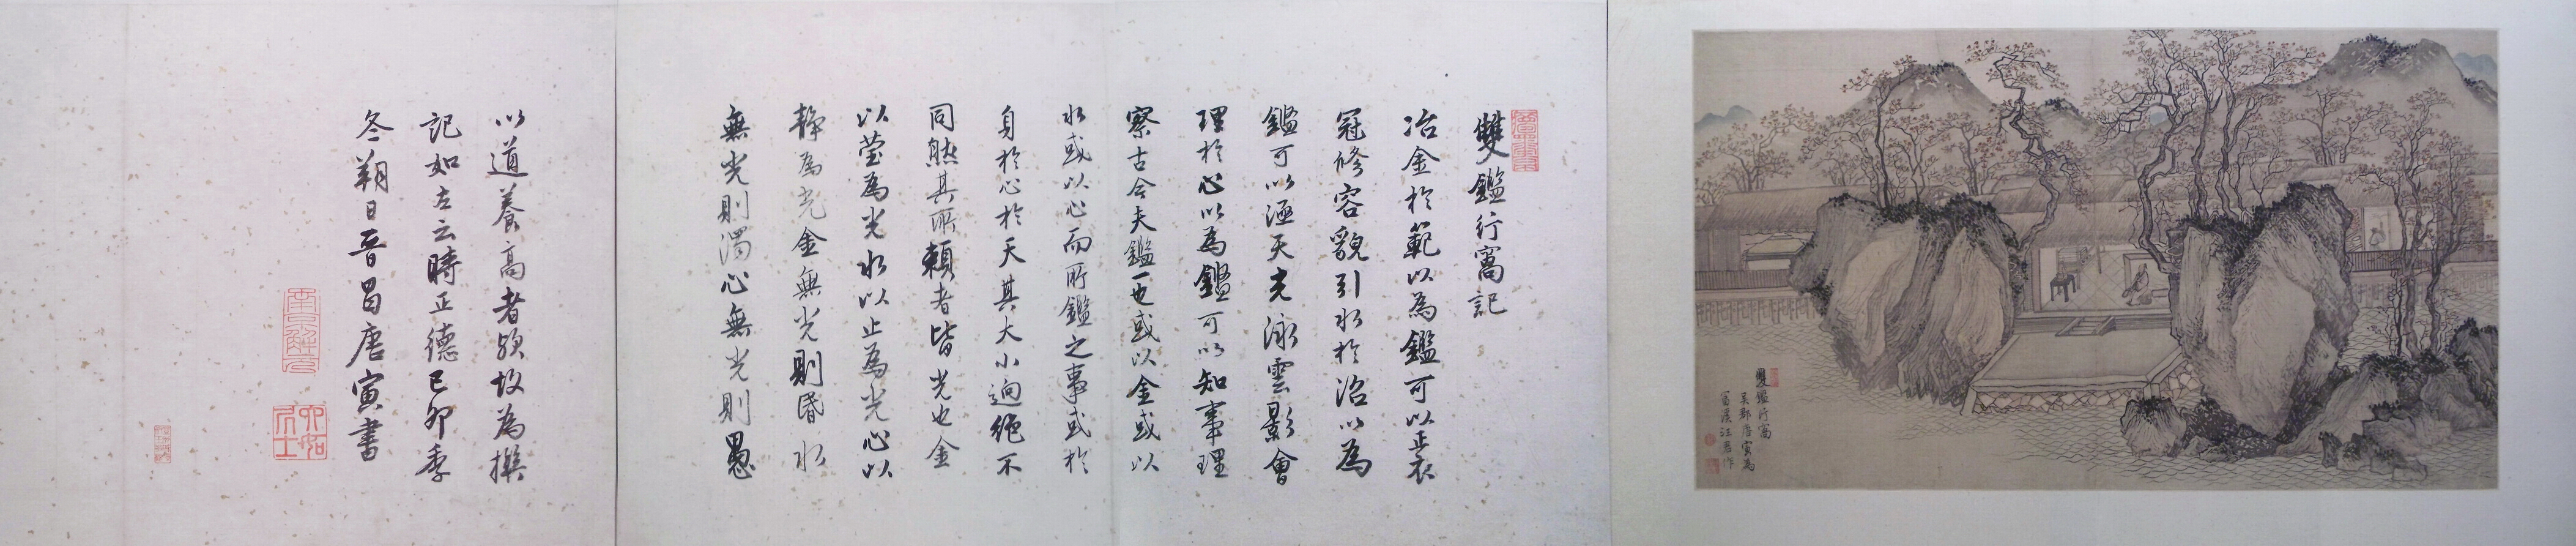 雙鑑行窩
吳郡唐寅為
富溪汪君作
雙鑑行窩記
冶金於範以為鑑可以正衣
冠修容貌引水於沼以為
鑑可以涵天光泳雲影會
理於心以為鑑可以知事理
察古今夫鑑一也或以金或以
水或以心而所鑑之事或於
身於心於天其大小迥絕不
同然其所賴者皆光也金
以瑩為光水以止為光心以
靜為光金無光則昏水
無光則濁心無光則愚
以道養高者歟故為撰
記如左云時正德己卯季
冬朔日晉昌唐寅書
南京解元
六如居士